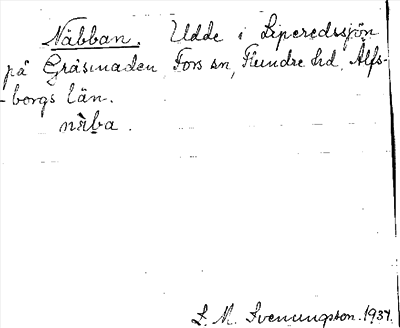 Näbban. Udde i Liperedssjön
på Gräsmaden, Fors sn, Flundre hd, Älfs-
-borgs län.
nàba.
L. M. Svenungsson. 1934.